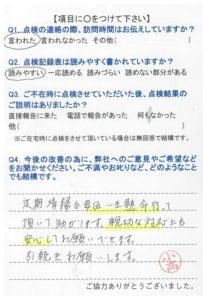 【項目に○をつけて下さい】
Q1. 点検の連絡の際、訪問時間はお伝えしていますか？
言われた 言われなかった その他( )
Q2. 点検記録表は読みやすく書かれていますか？
読みやすい 一応読める 読みづらい 読めない部分がある
Q3. ご不在時に点検させていただいた後、点検結果の
ご説明はありましたか？
直接報告に来た 電話で報告があった 何もなかった
他( )
※ご在宅時に点検をさせて頂いている場合は無回答で結構です。
Q4. 今後の改善の為に、弊社へのご意見やご希望など
をお聞かせください。ご不満やお叱りなど、どのようなこと
でも結構です。
定期清掃も毎回一生懸命やって
頂いて助かります。親切な対応にも
安心してお願いできます。
引続きお願いします。
ご協力ありがとうございました。